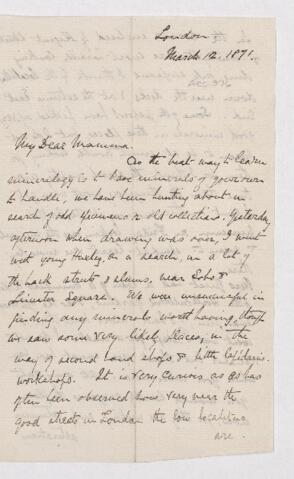 London
March 12. 1871.
My Dear Mamma.
As the best way to learn
mineralogy is to have minerals of your own
to handle, we have been hunting about in
search of old specimens or old collections. Yesterday
afternoon when drawing was over, I went
with young Huxley, on a search, in a lot of
the back streets & slums, near Soho &
Leicester Square. We were unsuccessful in
finding any minerals worth having, though
we saw some very likely places, in the
way of second hand shops & little lapidaries
workshops. It is very curious as as has
often been observed how very near the
good streets in London the low localities
are.